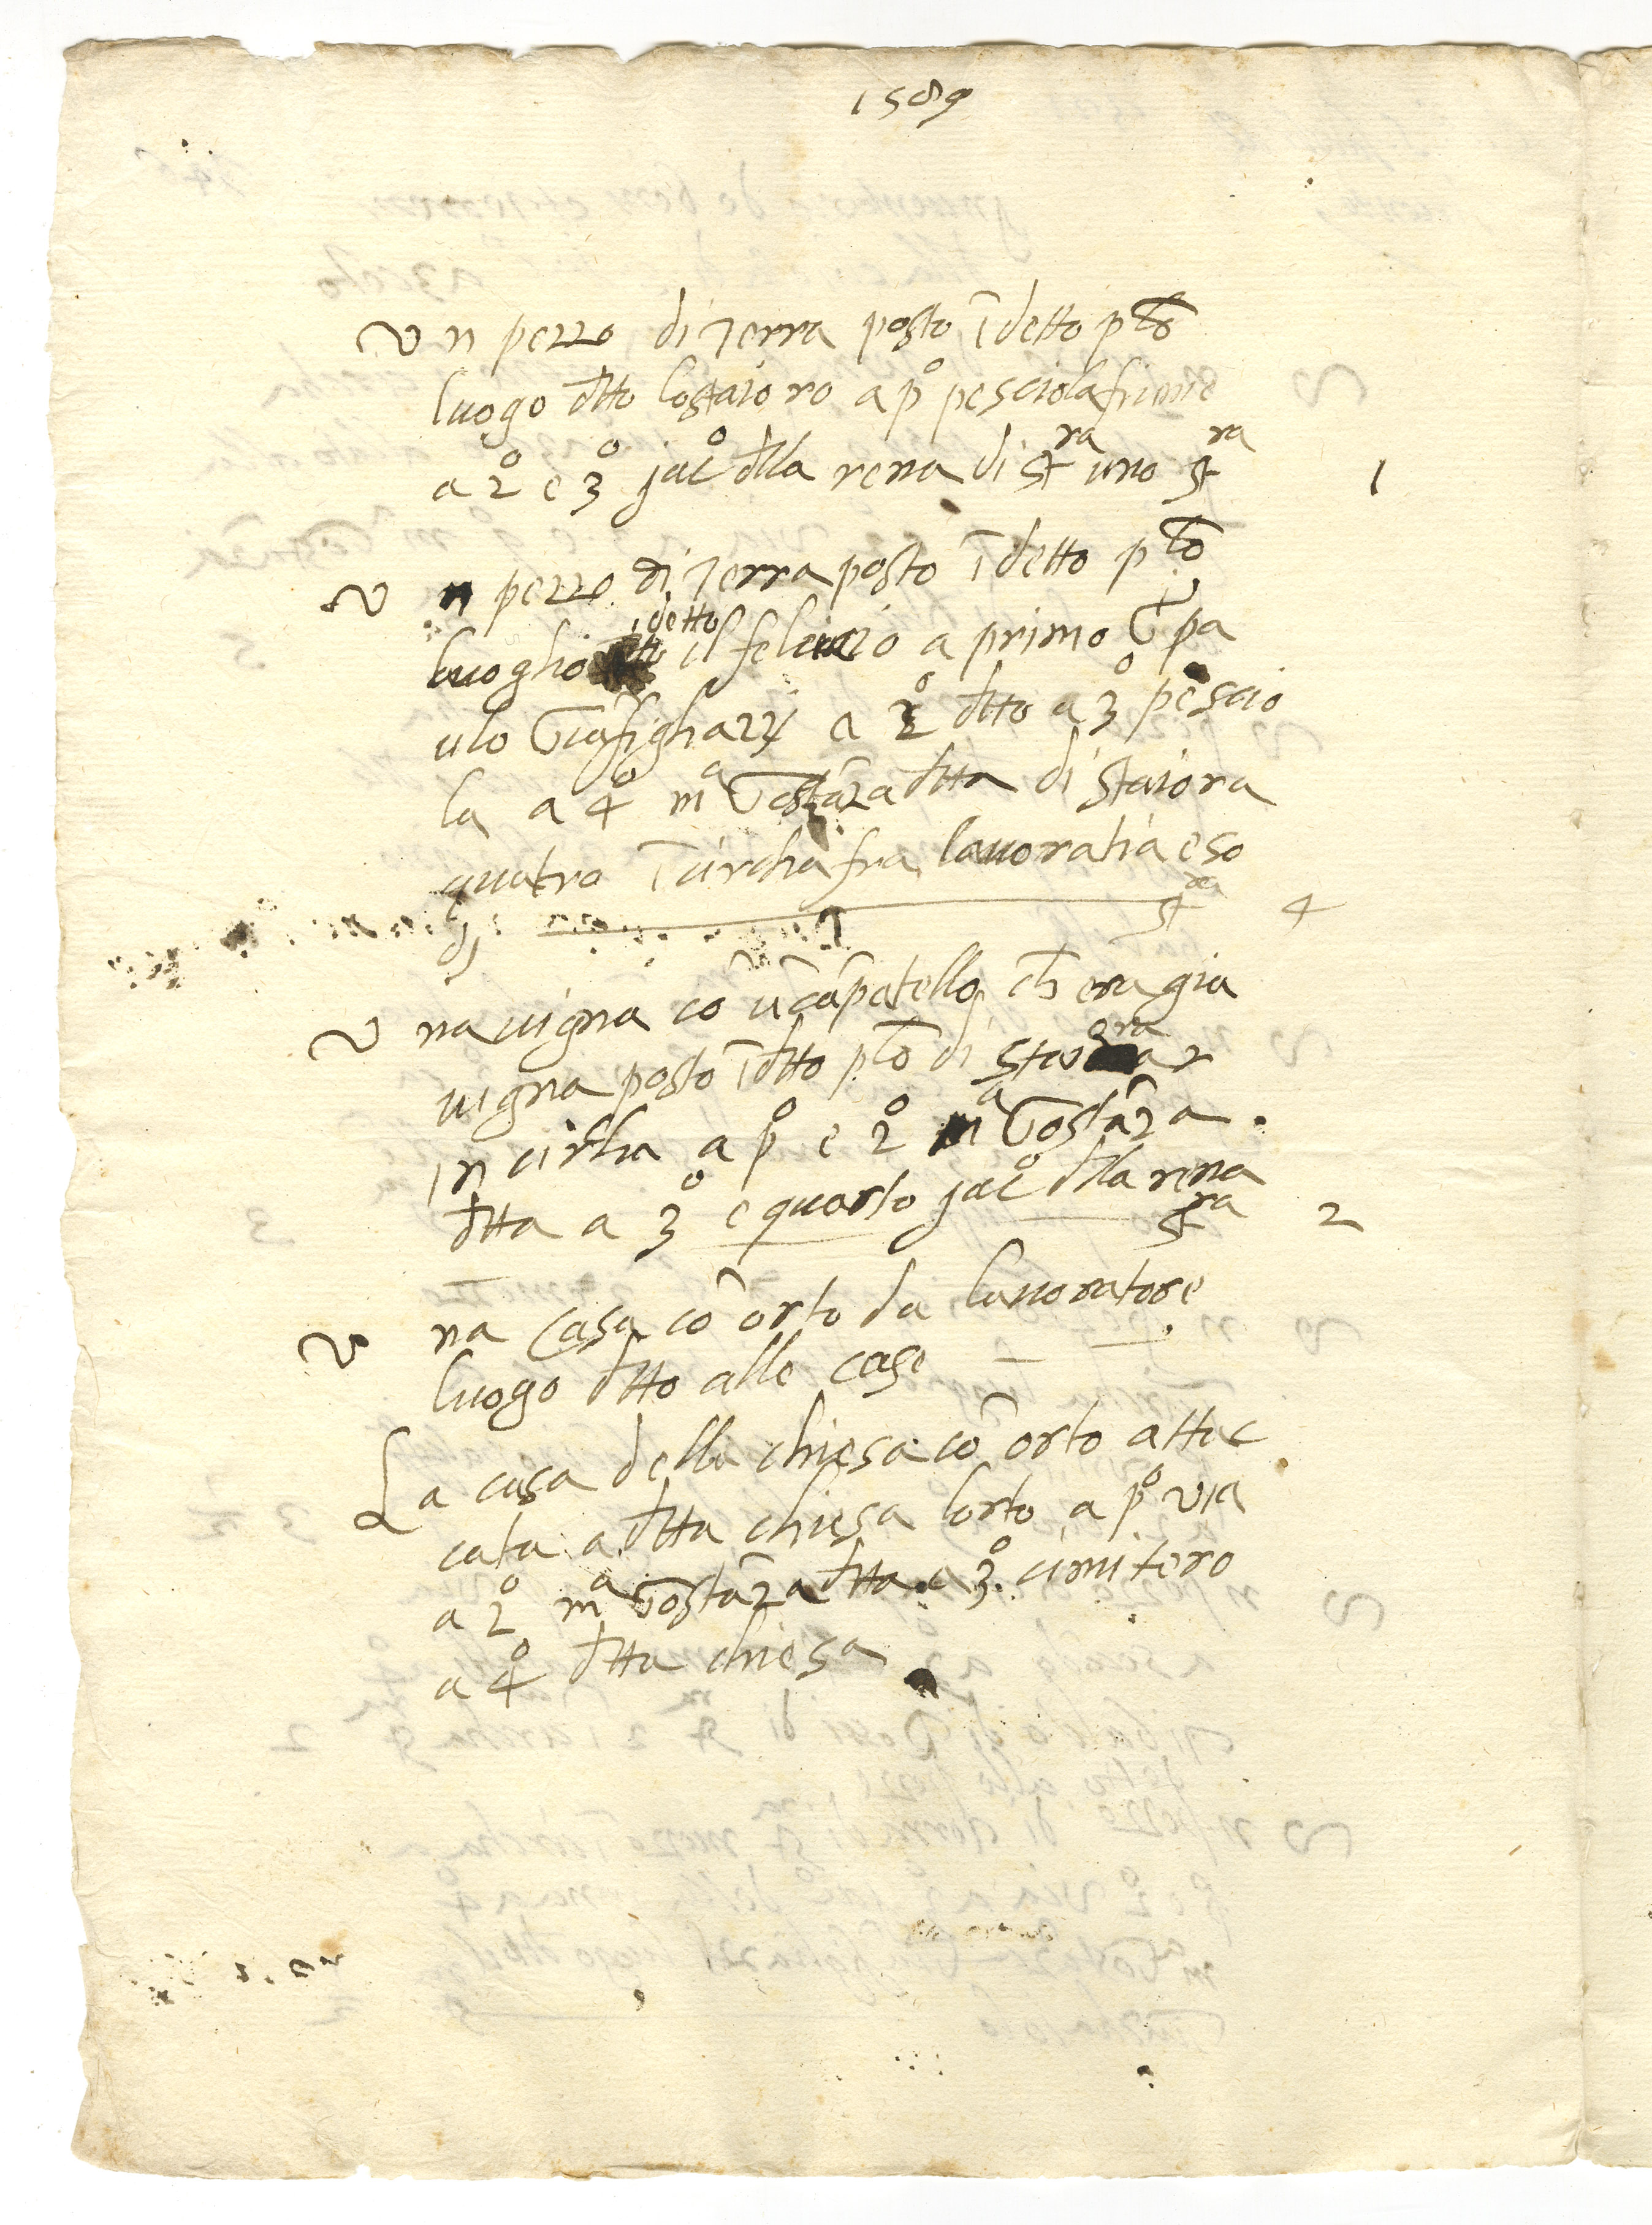 1589
Un pezzo di terra posto ī detto plō
luogo dtto lostaioro a p° pesciola fiume
a 2° e 3° jac° dlla rena di st^ra uno st^ra 1
Un pezzo di terra posto ī detto plō
luogho detto il felciaio a primo Gpa
ulo Gianfigliazzi a 2° dtto a 3° pescio
la a 4° m^a Gostāza dtta di staiora
quatro ī circha fra lavoratia e so
di st^ra 4
Una vigna cō ū cāpatello ch era gia
vigna posto ī dtto plō di staiora 2
in circha a p° e 2° m^a Gostāza
dtta a 3° e quarto jac° dlla rena
st^ra 2
Una casa cō orto da lavoratore
luogo dtto alle case
La casa della chiesa cō orto attac
cata a dtta chiesa lorto a p° via
a 2° m^a Gostāza dtta a 3° cimitero
a 4° dtta chiesa